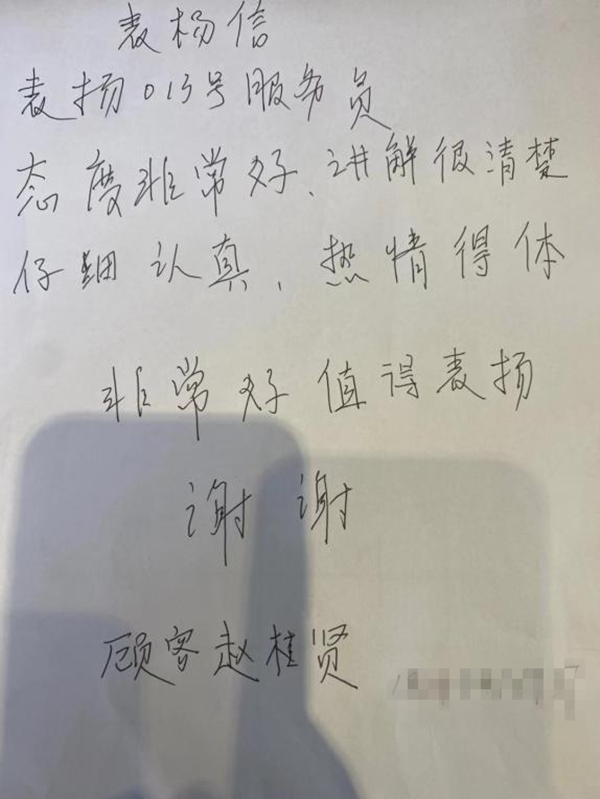 表杨信
表扬013号服务员
态度非常好、讲解很清楚
仔细认真、热情得体
非常好值得表扬
谢谢
顾客赵桂贤